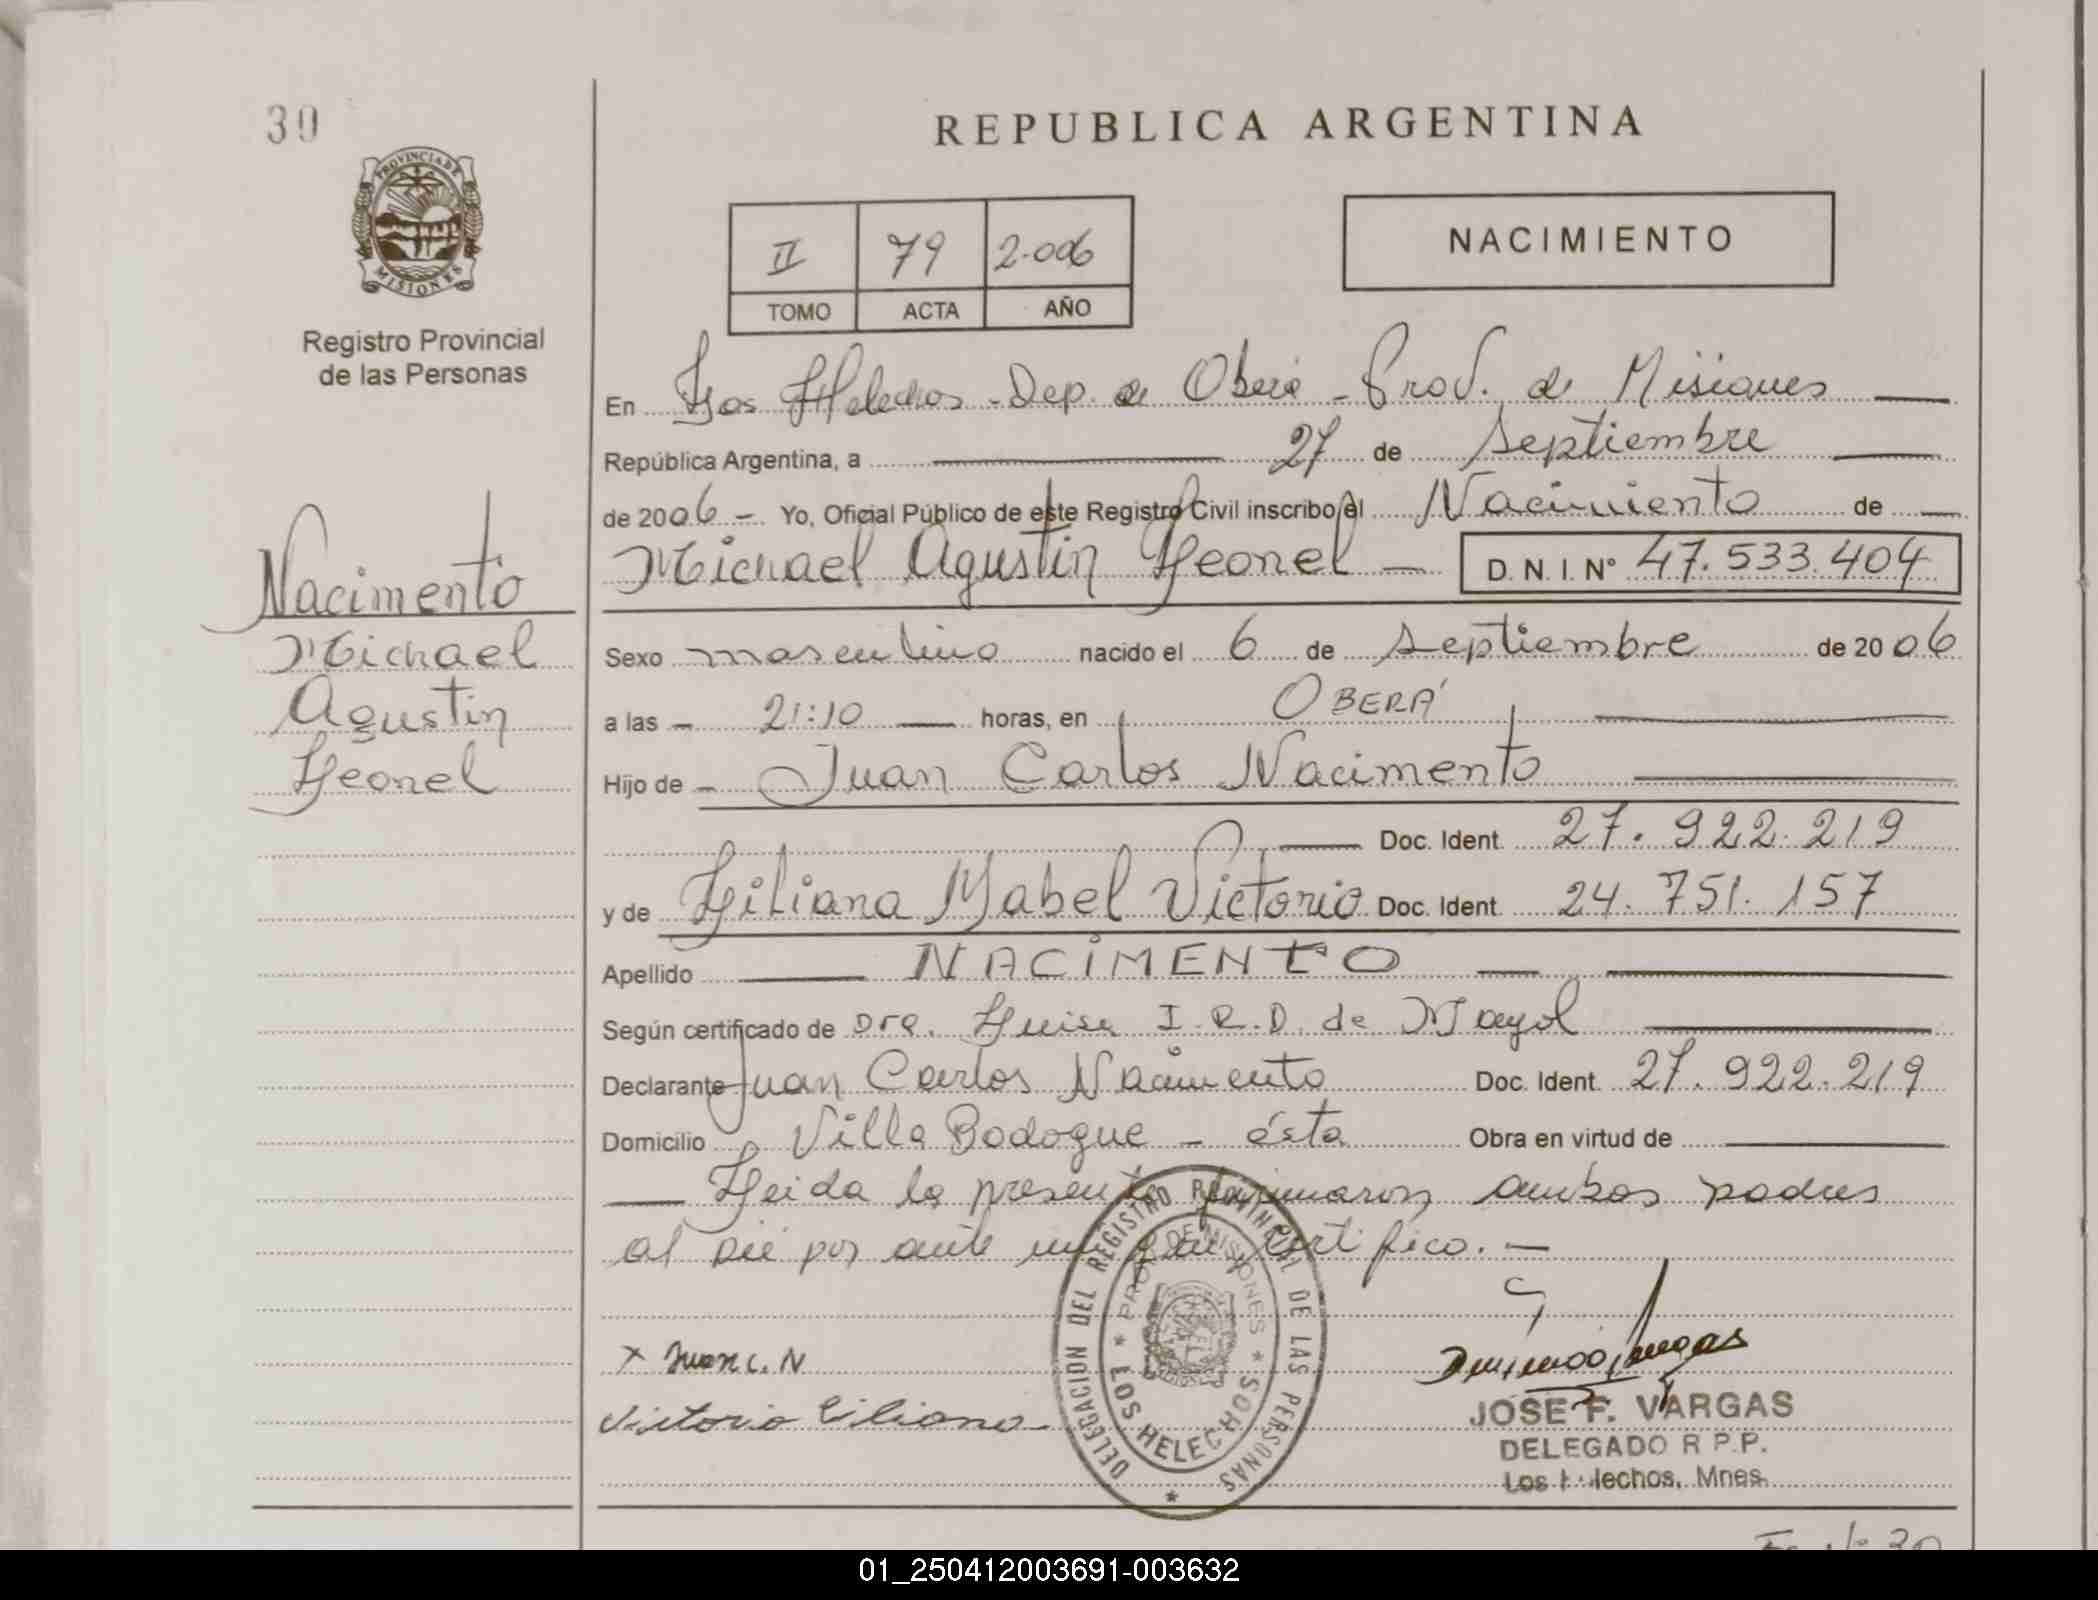 30
REPUBLICA ARGENTINA
PROVINCIA DE
MISIONES
Registro Provincial
de las Personas
II 79 2.006
TOMO ACTA AÑO
NACIMIENTO
En Los Helechos - Dep. de Oberá - Prov. de Misiones
República Argentina, a 27 de Septiembre
de 2006 - Yo, Oficial Público de este Registro Civil inscribo el Nacimiento de
Michael Agustin Leonel - D.N.I. N° 47.533.404
Nacimento
Michael
Agustin
Leonel
Sexo masculino nacido el 6 de septiembre de 2006
a las - 21:10 horas, en OBERÁ
Hijo de - Juan Carlos Nacimento
Doc. Ident. 27.922.219
y de Liliana Mabel Victorio Doc. Ident. 24.751.157
Apellido NACIMENTO
Según certificado de Dra. Luisa I.R.D. de Mayol
Declarante Juan Carlos Nacimento Doc. Ident. 27.922.219
Domicilio Villa Bodoque - ésta Obra en virtud de
Leida la presente firmaron ambos padres
al pie por ante mi que certifico. -
x Juan C. N
Victorio Liliana
DELEGACIÓN DEL REGISTRO PROVINCIAL DE LAS PERSONAS
PROV. DE MISIONES
LOS HELECHOS
JOSE F. VARGAS
DELEGADO R.P.P.
Los Helechos, Mnes.
01_250412003691-003632